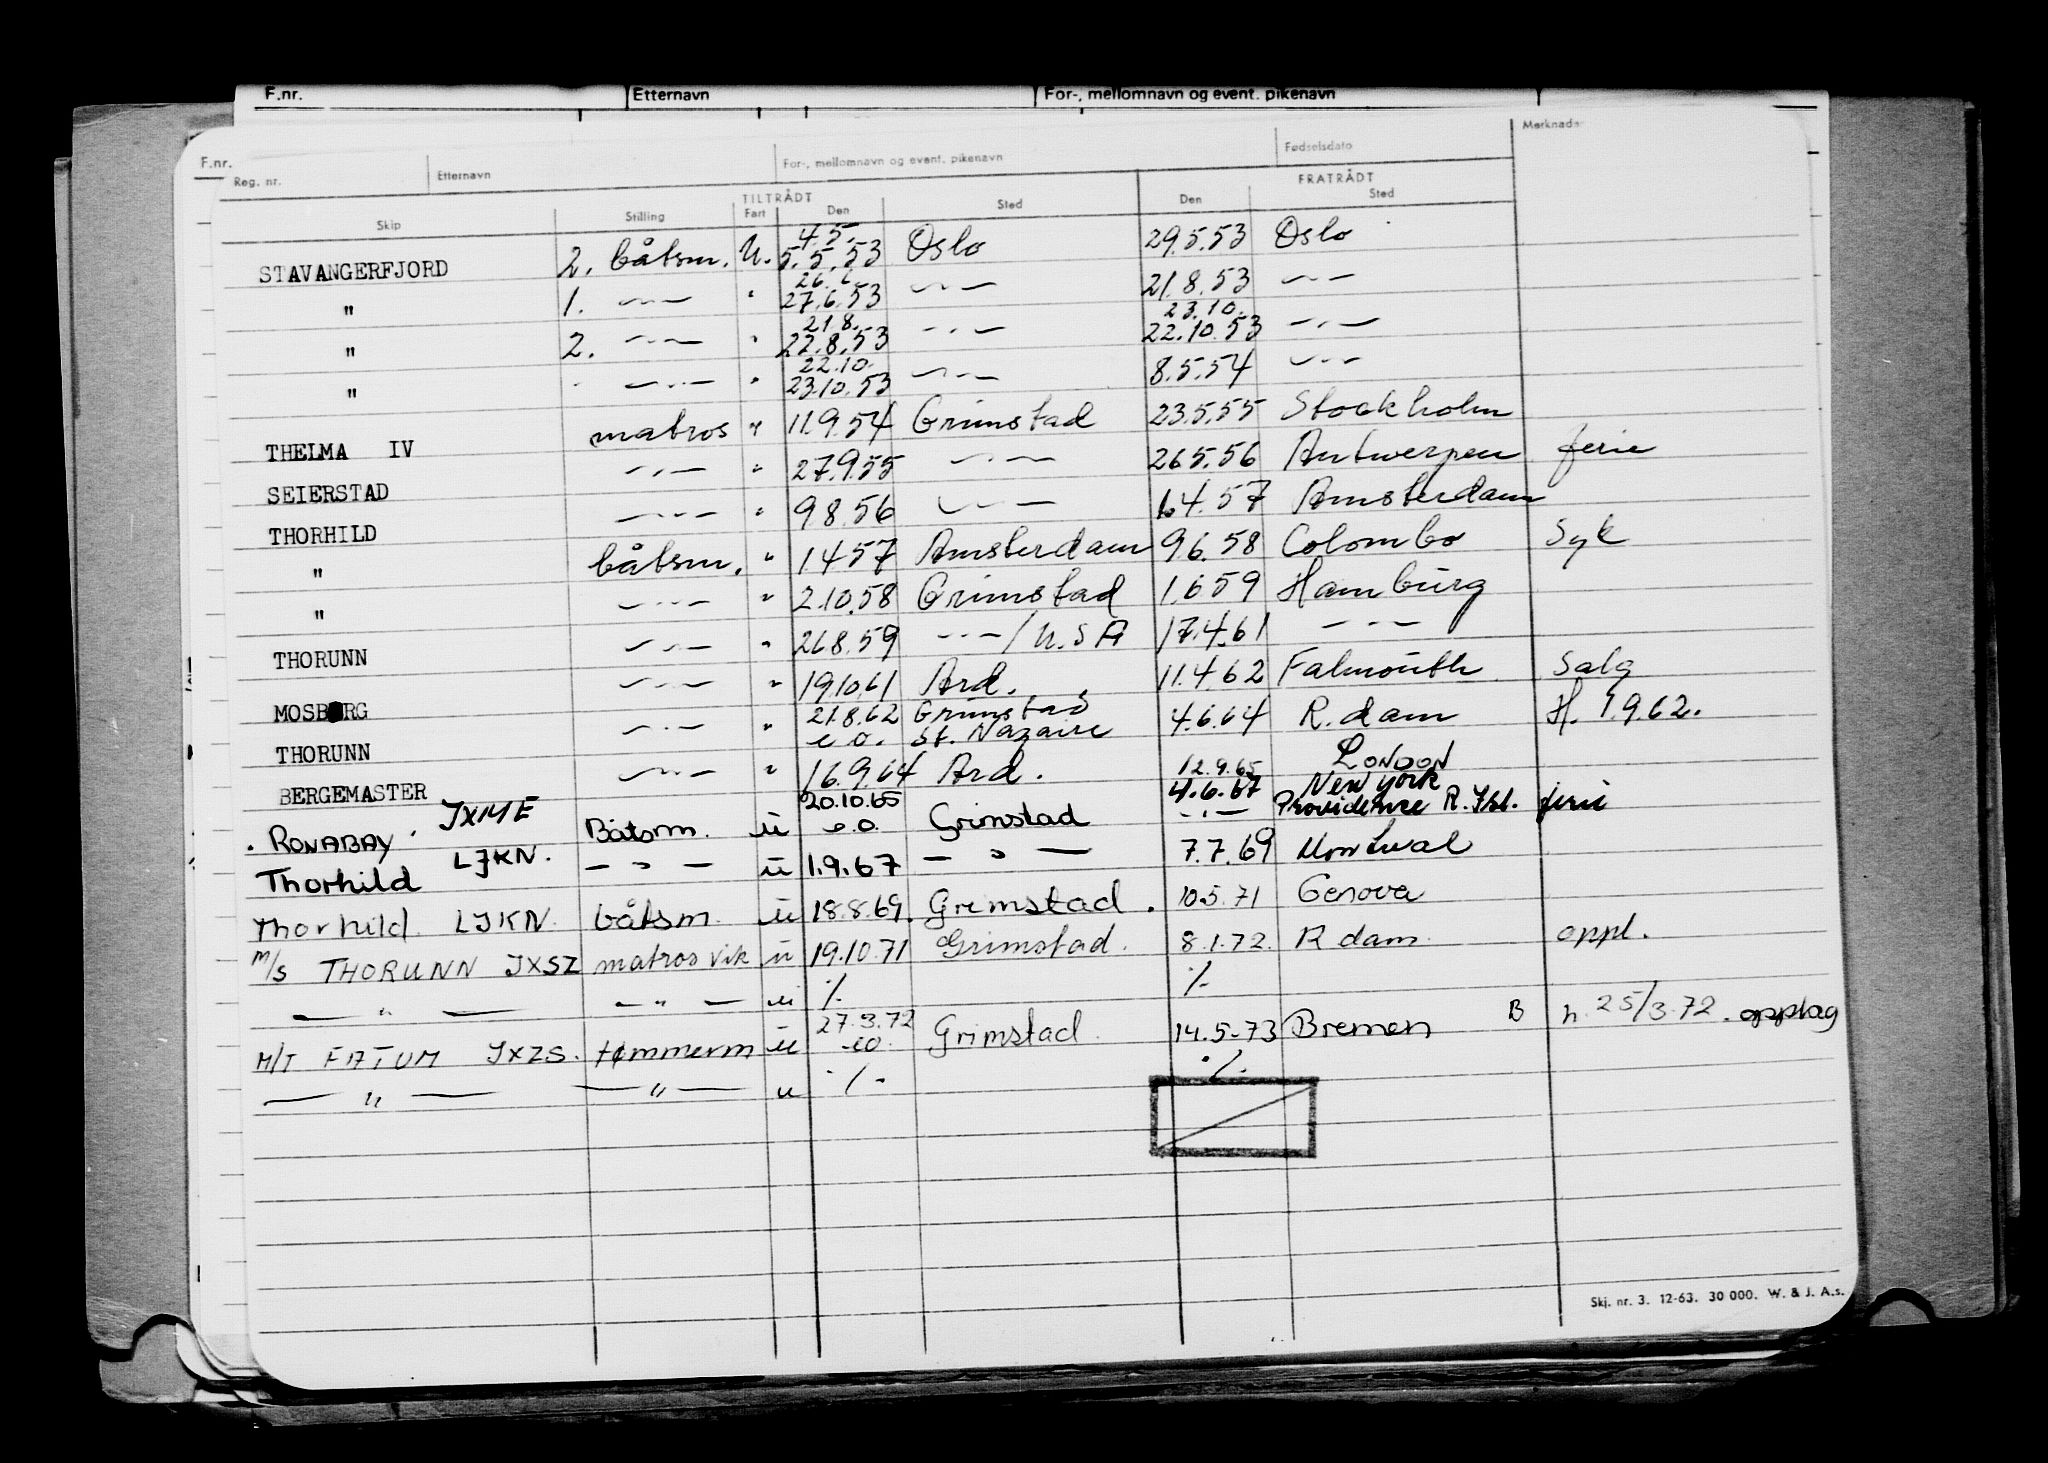 F.nr. Etternavn For-, mellomnavn og event. pikenavn
F.nr.
Reg. nr. Etternavn For-, mellomnavn og event. pikenavn Fødselsdato Merknader
TILTRÅDT FRATRÅDT
Skip Stilling Fart Den Sted Den Sted
4.5.
STAVANGERFJORD 2. båtsm. U. 5.5.53 Oslo 29.5.53 Oslo
26.6.
" 1. -"- " 27.6.53 -"- 21.8.53 -"-
21.8. 23.10.
" 2. -"- " 22.8.53 -"- 22.10.53 -"-
22.10.
" " -"- " 23.10.53 -"- 8.5.54 -"-
THELMA IV matros " 11.9.54 Grimstad 23.5.55 Stockholm
SEIERSTAD -"- " 27.9.55 -"- 26.5.56 Antwerpen ferie
THORHILD -"- " 9.8.56 -"- 1.4.57 Amsterdam
" båtsm. " 1.4.57 Amsterdam 9.6.58 Colombo Syk
" -"- " 2.10.58 Grimstad 1.6.59 Hamburg
THORUNN -"- " 26.8.59 -"-/U.S.A 17.4.61 -"-
MOSBORG -"- " 19.10.61 Ard. 11.4.62 Falmouth Salg
THORUNN -"- " 21.8.62 Grimstad 4.6.64 R.dam H. 1.9.62.
e.o. St. Nazaire
BERGEMASTER -"- " 16.9.64 Ard. 12.9.65 LONDON
RONABAY JXME Båtsm. u 20.10.65 Grimstad 4.6.67 New York
e.o. -"- Providence R.Isl. ferie
Thorhild LJKN. -"- u 1.9.67 -"- 7.7.69 Montreal
Thorhild LJKN. båtsm. u 18.8.69. Grimstad. 10.5.71 Genova
M/S THORUNN JXSZ matros vik u 19.10.71 Grimstad. 8.1.72. R dam. oppl.
-"- -"- u ./. ./.
M/T FATUM JXZS. tømmerm u 27.3.72 Grimstad. 14.5.73 Bremen B h. 25/3.72. opplag
eo.
-"- -"- u ./. ./.
Skj. nr. 3. 12-63. 30 000. W. & J. A.s.